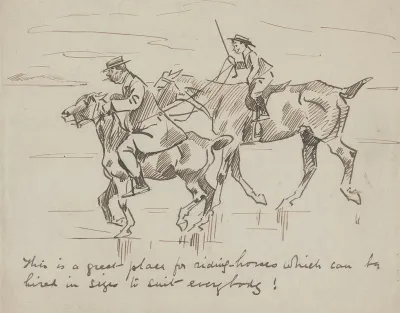 This is a great place for riding-horses which can be
hired in sizes to suit everybody !